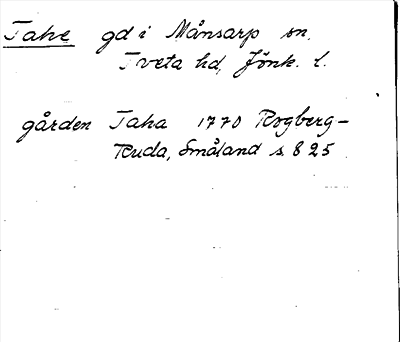 Tahe gd i Månsarp sn.
Tveta hd, Jönk. l.
gården Taha 1770 Rogberg-
Ruda, Småland s. 825